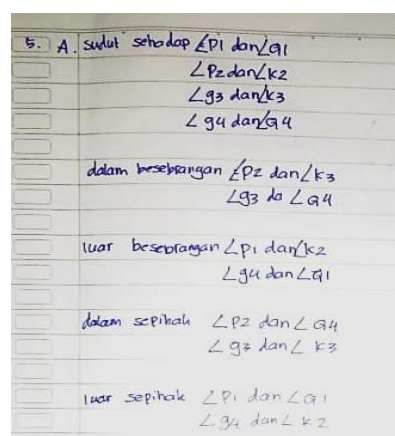 5. A. sudut sehadap ∠P1 dan ∠Q1
∠P2 dan ∠K2
∠g3 dan ∠K3
∠g4 dan ∠Q4
dalam besebrangan ∠P2 dan ∠K3
∠g3 da ∠Q4
luar besebrangan ∠P1 dan ∠K2
∠g4 dan ∠Q1
dalam sepihak ∠P2 dan ∠Q4
∠g3 dan ∠K3
luar sepihak ∠P1 dan ∠Q1
∠g4 dan ∠K2